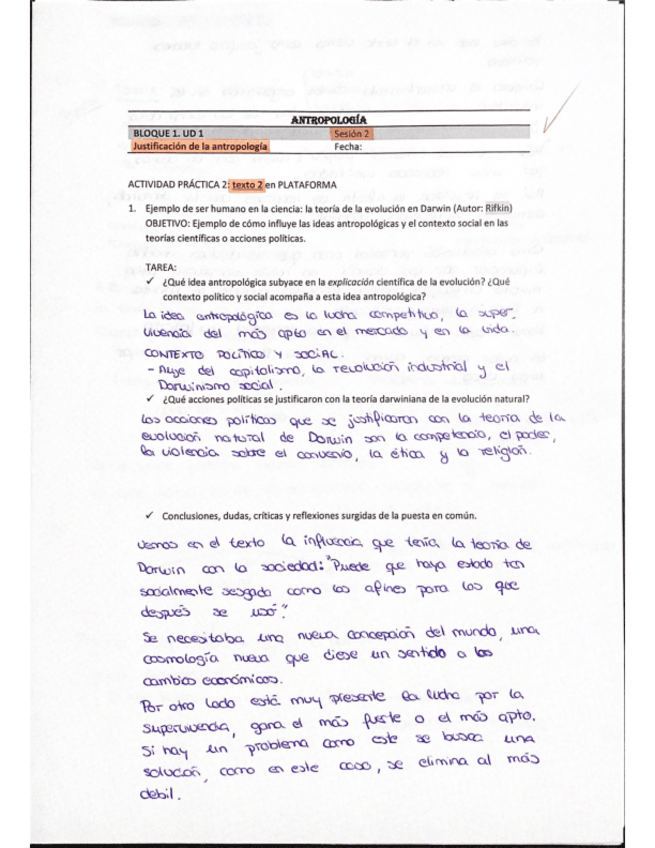 ANTROPOLOGÍA
BLOQUE 1. UD 1 Sesión 2
Justificación de la antropología Fecha:
ACTIVIDAD PRÁCTICA 2: texto 2 en PLATAFORMA
1. Ejemplo de ser humano en la ciencia: la teoría de la evolución en Darwin (Autor: Rifkin)
OBJETIVO: Ejemplo de cómo influye las ideas antropológicas y el contexto social en las
teorías científicas o acciones políticas.
TAREA:
✓ ¿Qué idea antropológica subyace en la explicación científica de la evolución? ¿Qué
contexto político y social acompaña a esta idea antropológica?
La idea antropológica es la lucha competitiva, la super-
vivencia del más apto en el mercado y en la vida.
CONTEXTO POLÍTICO Y SOCIAL.
- Auge del capitalismo, la revolución industrial y el
Darwinismo social.
✓ ¿Qué acciones políticas se justificaron con la teoría darwiniana de la evolución natural?
Las acciones políticas que se justificaron con la teoría de la
evolución natural de Darwin son la competencia, el poder,
la violencia sobre el convenio, la ética y la religión.
✓ Conclusiones, dudas, críticas y reflexiones surgidas de la puesta en común.
Vemos en el texto la influencia que tenía la teoría de
Darwin con la sociedad: "Puede que haya estado tan
socialmente sesgada como los afines para los que
después se usó".
Se necesitaba una nueva concepción del mundo, una
cosmología nueva que diese un sentido a los
cambios económicos.
Por otro lado está muy presente la lucha por la
supervivencia, gana el más fuerte o el más apto.
Si hay un problema como este se busca una
solución, como en este caso, se elimina al más
debil.